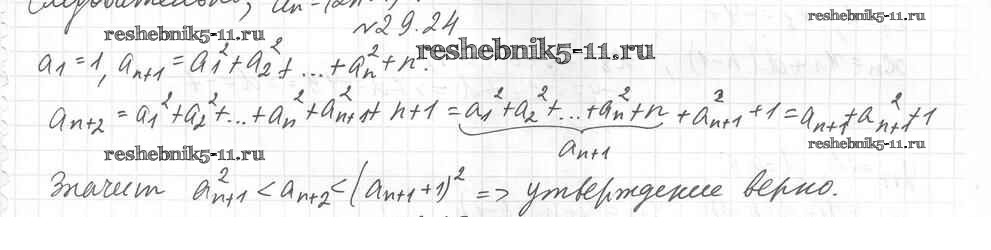 Следовательно,
№29.24
reshebnik5-11.ru
reshebnik5-11.ru
reshebnik5-11.ru
a₁=1, aₙ₊₁=a₁²+a₂²+...+aₙ²+n.
aₙ₊₂=a₁²+a₂²+...+aₙ²+aₙ₊₁²+n+1=a₁²+a₂²+...+aₙ²+n+aₙ₊₁²+1=aₙ₊₁+aₙ₊₁²+1
aₙ₊₁
reshebnik5-11.ru
reshebnik5-11.ru
Значит aₙ₊₁²<aₙ₊₂<(aₙ₊₁+1)² => утверждение верно.